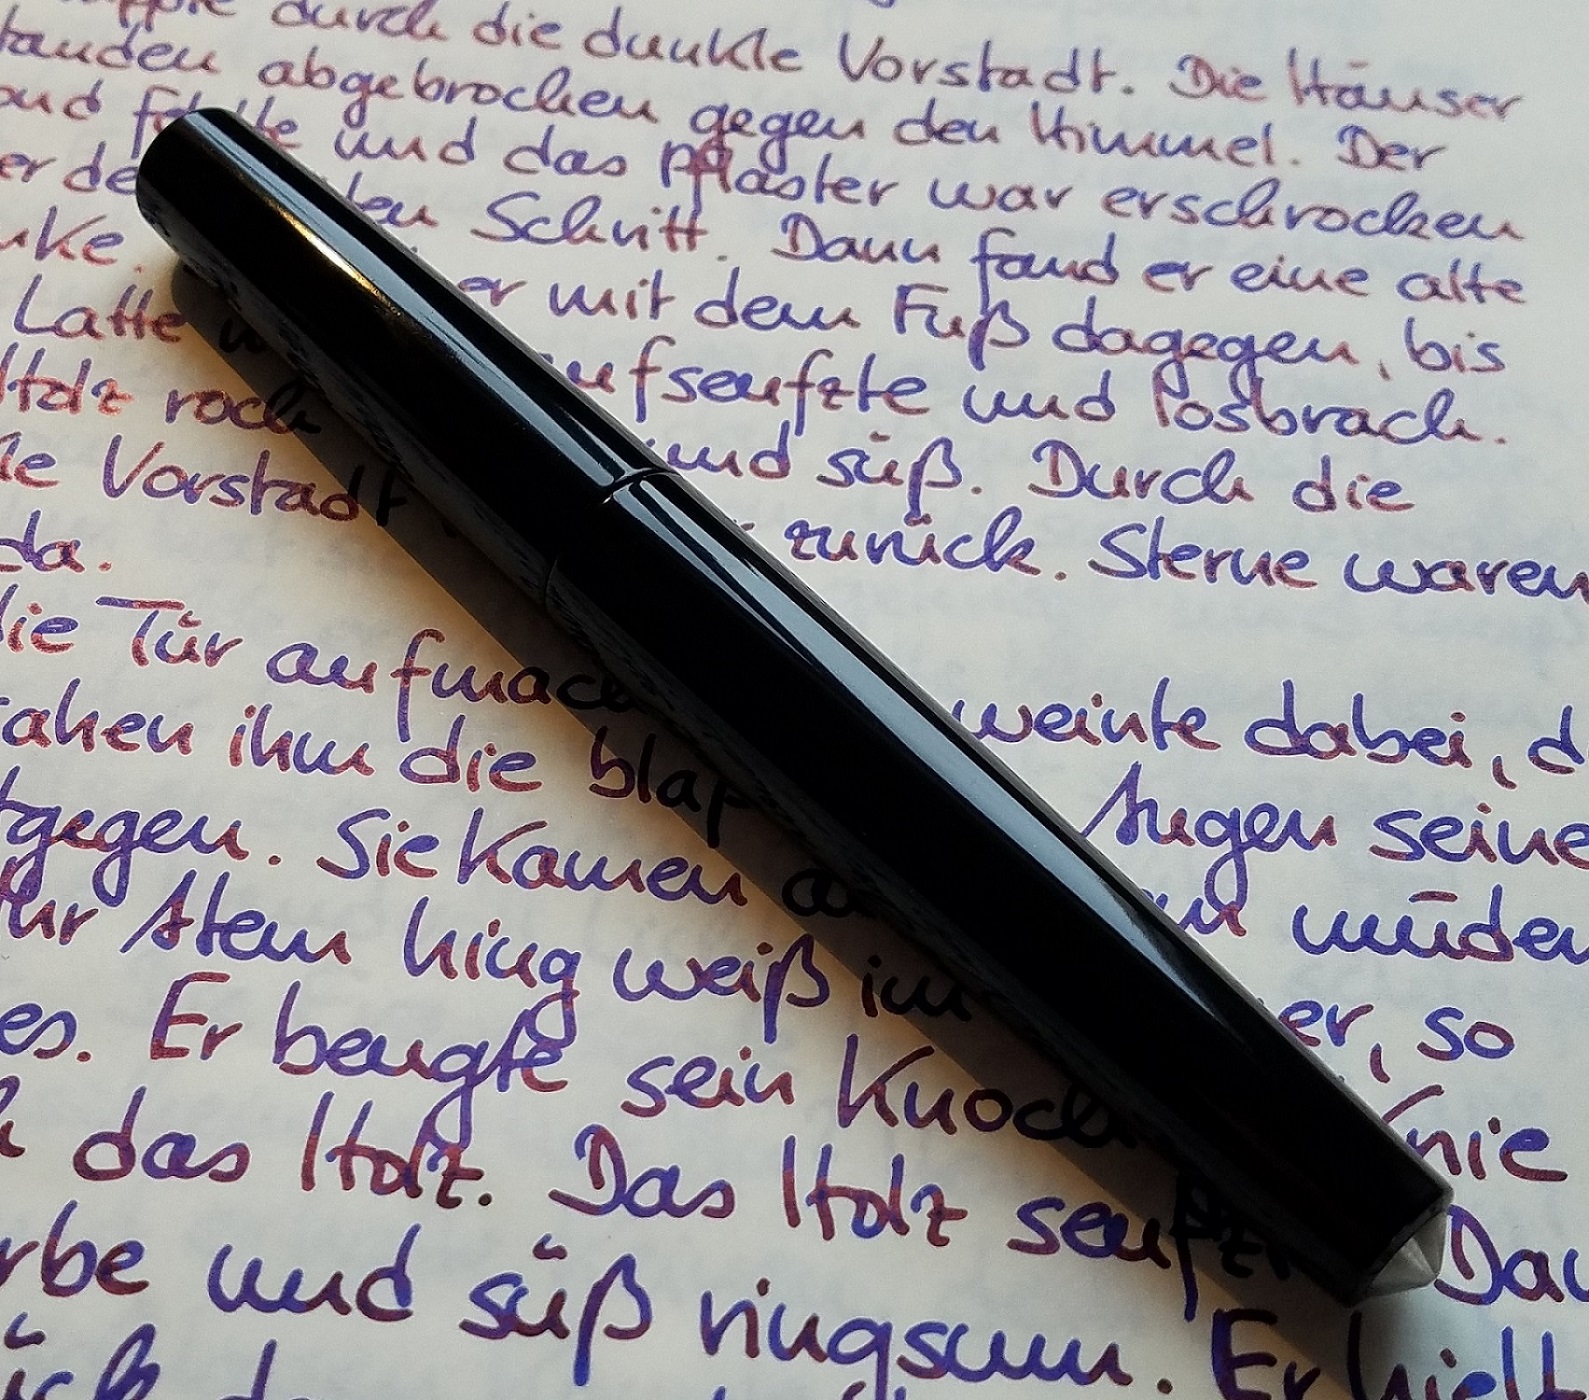 durch die dunkle Vorstadt. Die Häuser
abgebrochen gegen den Himmel. Der
und das Pflaster war erschrocken
Schritt. Dann fand er eine alte
Latte er mit dem Fuß dagegen, bis
Holz roch aufseufzte und losbrach.
Vorstadt und süß. Durch die
da. zurück. Sterne waren
die Tür aufmach weinte dabei, d
ihm die blaß Augen seine
gegen. Sie kamen müden
Ihr Atem hing weiß im er, so
es. Er beugte sein Knoch Knie
das Holz. Das Holz seufzt Dau
rbe und süß ringsum. Er hielt